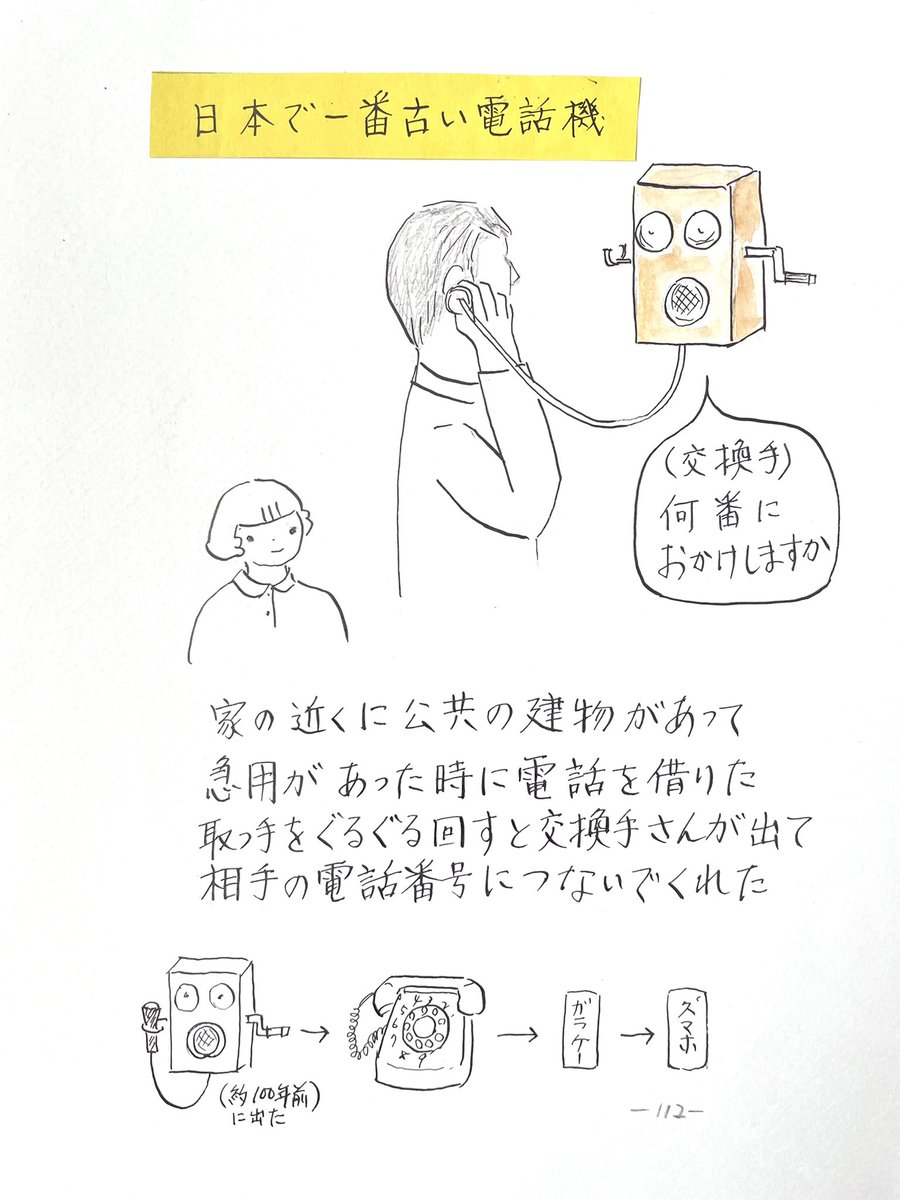 日本で一番古い電話機
(交換手)
何番に
おかけしますか
家の近くに公共の建物があって
急用があった時に電話を借りた
取っ手をぐるぐる回すと交換手さんが出て
相手の電話番号につないでくれた
(約100年前)
に出た
ガラケー
スマホ
-112-